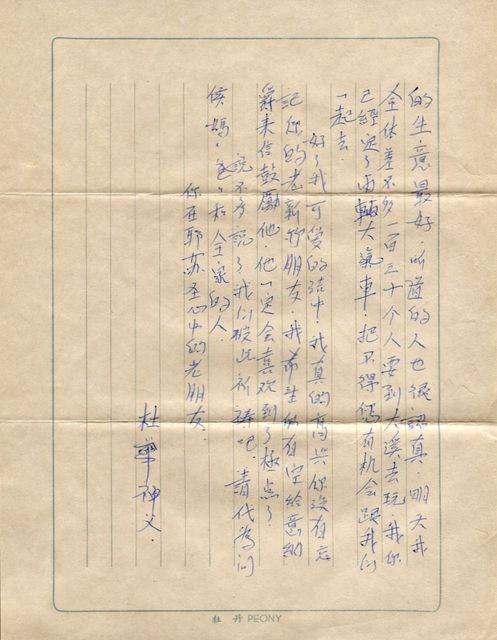 的生意最好．听道的人也很認真．明天我
全体差不多一百三十个人要到大溪去玩我们
已經定了两輛大氣車．把不得你有机会跟我们
一起去．
好了我可爱的     ．我真的高兴你没有忘
記你的老新      朋友．我希望你有空給意納
爵来信鼓勵他．他一定会喜欢到了極点了
說不多說了我们彼此祈禱吧．請代為问
候媽．爸．和全家的人．
你在耶苏圣心中的老朋友．
杜華神父．
牡丹 PEONY